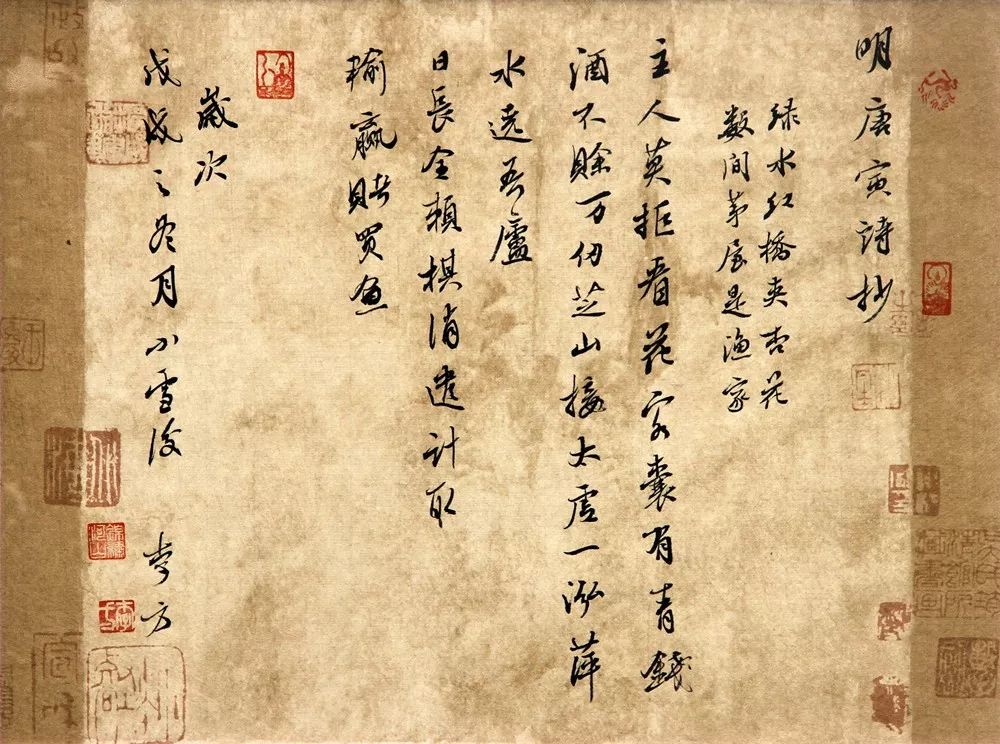 明唐寅詩抄
绿水红橋夹杏花
数间茅屋是渔家
主人莫拒看花客囊有青錢
酒不賒万仞芝山接太虚一泓萍
水遶吾廬
日長全賴棋消遣计取
输赢賭買鱼
歲次
戊戌之冬月小雪後 李方